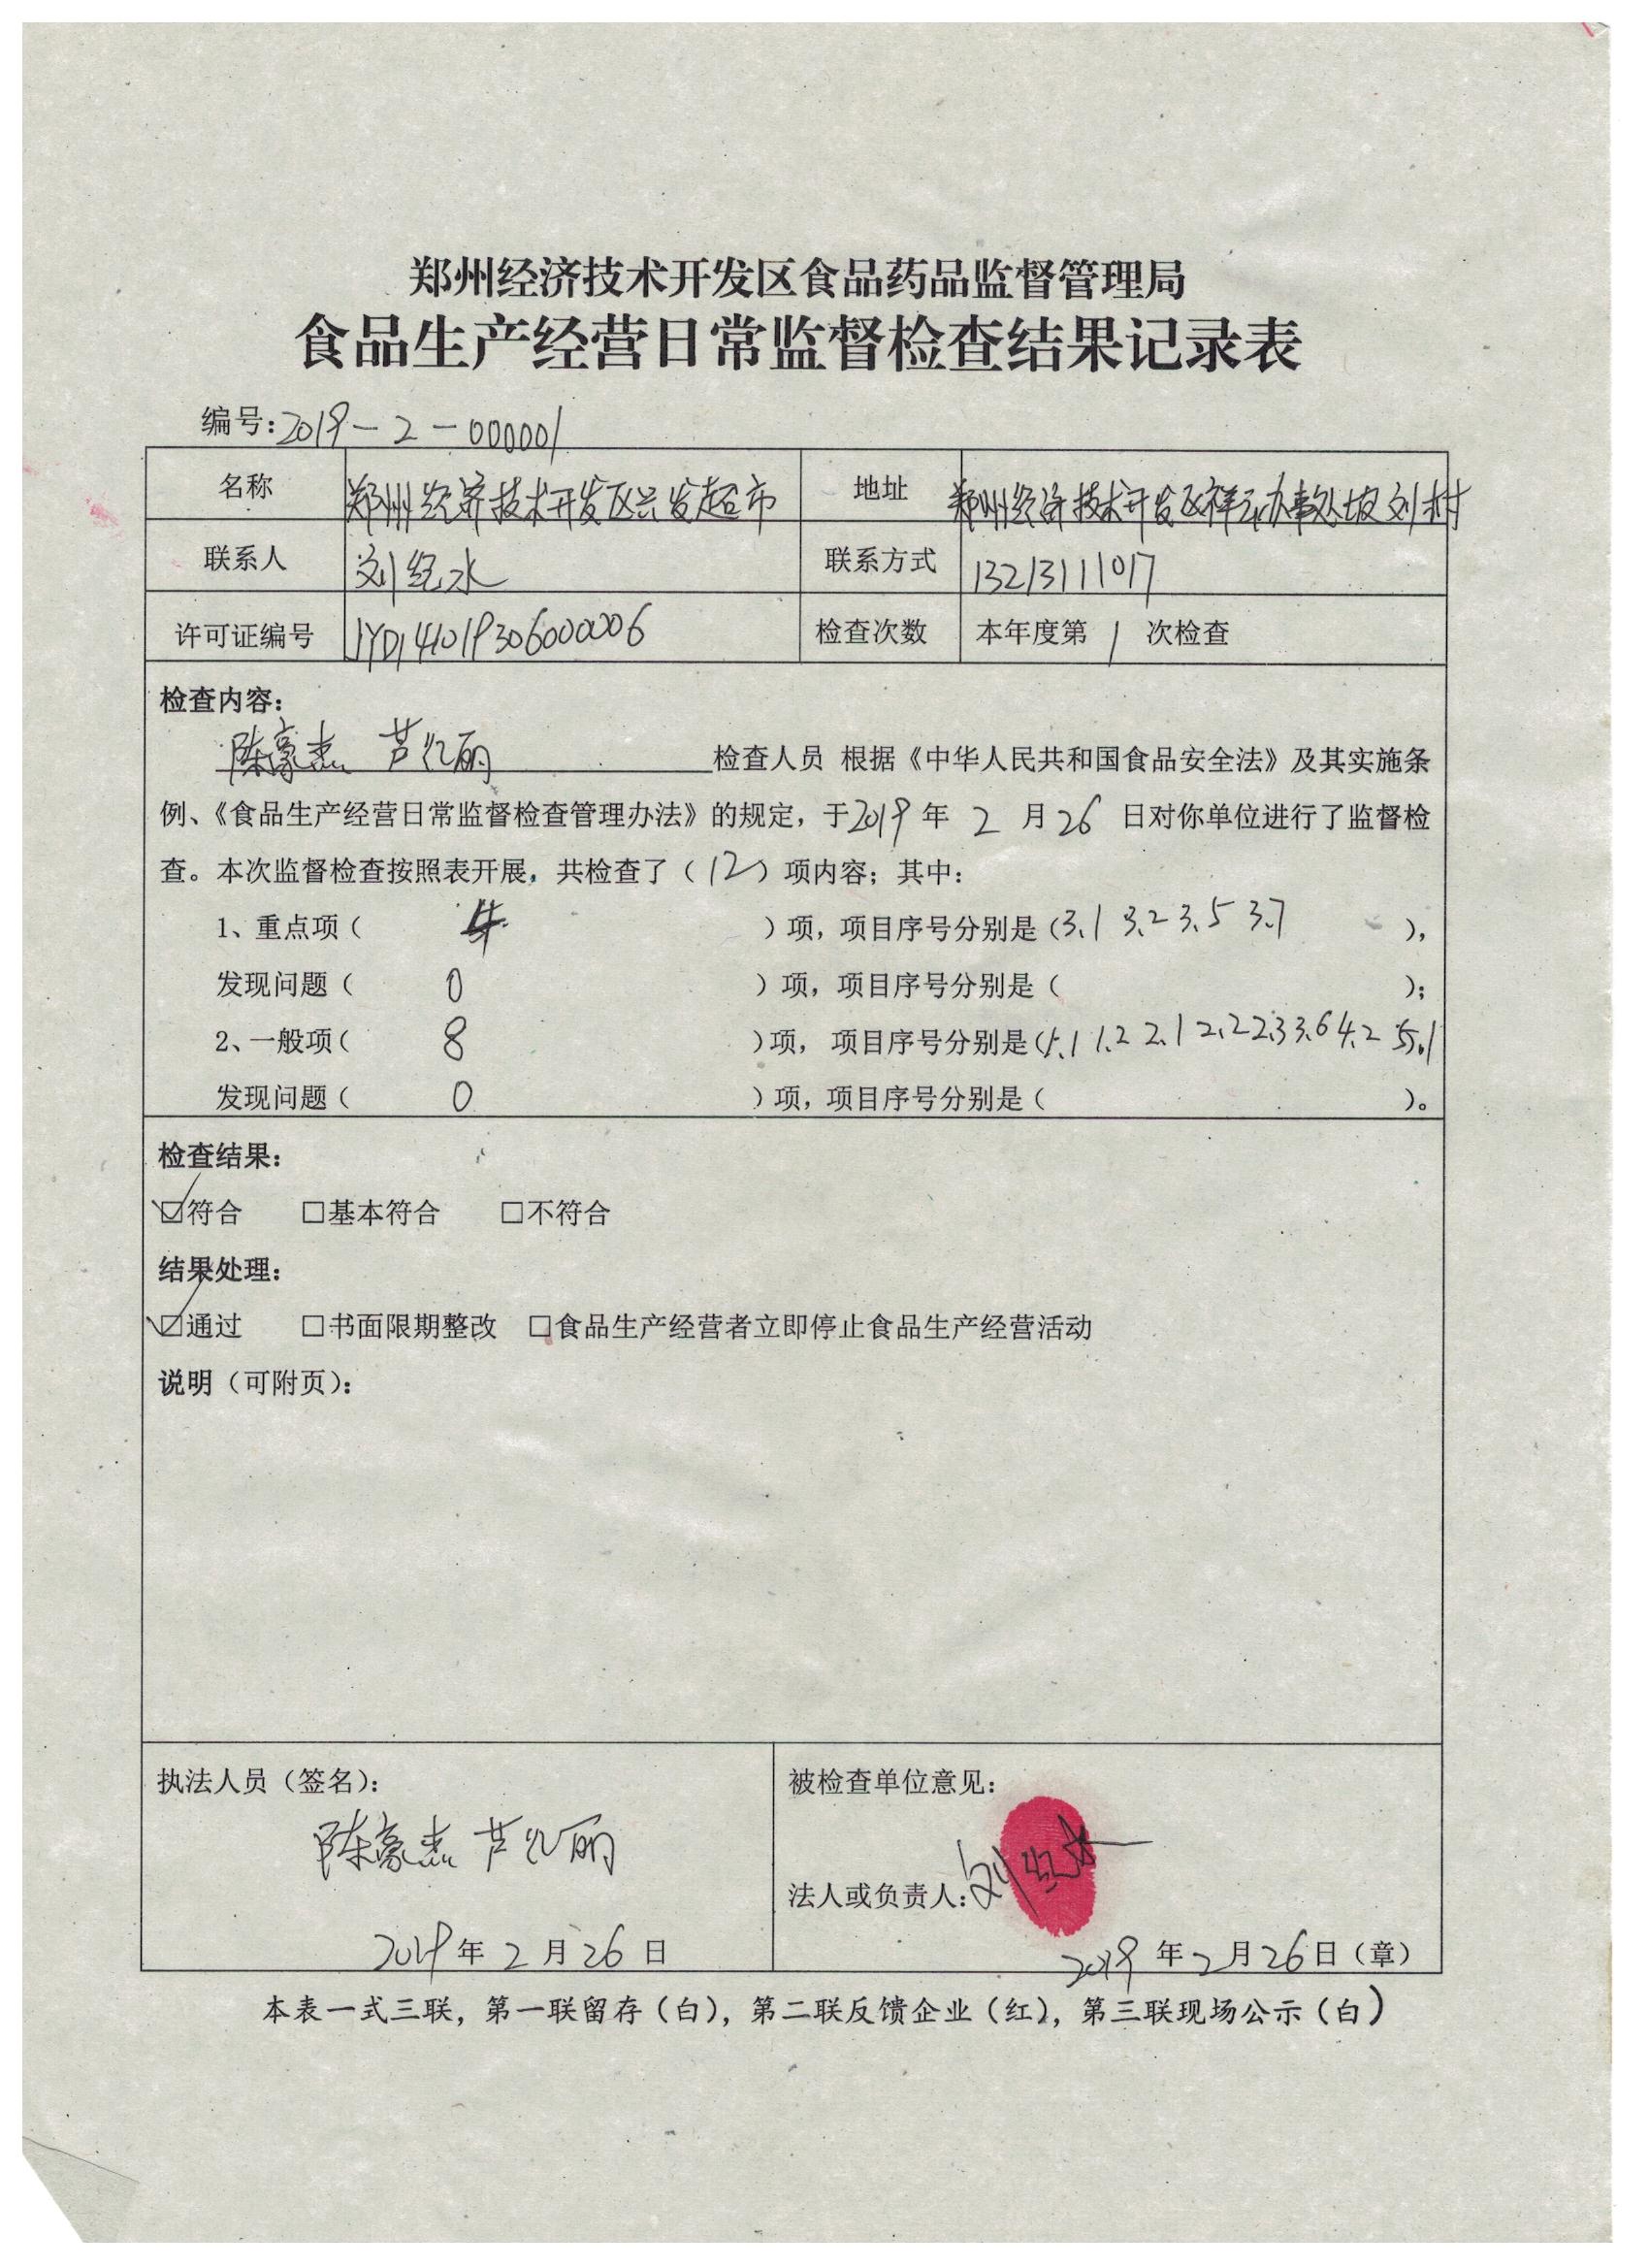 郑州经济技术开发区食品药品监督管理局
食品生产经营日常监督检查结果记录表
编号:2019-2-000001
名称 郑州经济技术开发区兴发超市 地址 郑州经济技术开发区祥云办事处坡刘村
联系人 刘纪水 联系方式 13213111017
许可证编号 JYD141019306000006 检查次数 本年度第 1 次检查
检查内容:
陈豪杰 芦亿丽 检查人员 根据《中华人民共和国食品安全法》及其实施条
例、《食品生产经营日常监督检查管理办法》的规定,于2019年 2 月26 日对你单位进行了监督检
查。本次监督检查按照表开展,共检查了(12)项内容;其中:
1、重点项( 4 )项,项目序号分别是(3.1 3.2 3.5 3.7 ),
发现问题( 0 )项,项目序号分别是( );
2、一般项( 8 )项, 项目序号分别是(1.1 1.2 2.1 2.2 2.3 3.6 4.2 5.1
发现问题( 0 )项,项目序号分别是( )。
检查结果:
☑符合 □基本符合 □不符合
结果处理:
☑通过 □书面限期整改 □食品生产经营者立即停止食品生产经营活动
说明(可附页):
执法人员(签名): 被检查单位意见:
陈豪杰 芦亿丽
法人或负责人:刘纪水
2019年 2 月 26 日 2019 年 2 月 26日(章)
本表一式三联,第一联留存(白),第二联反馈企业(红),第三联现场公示(白)